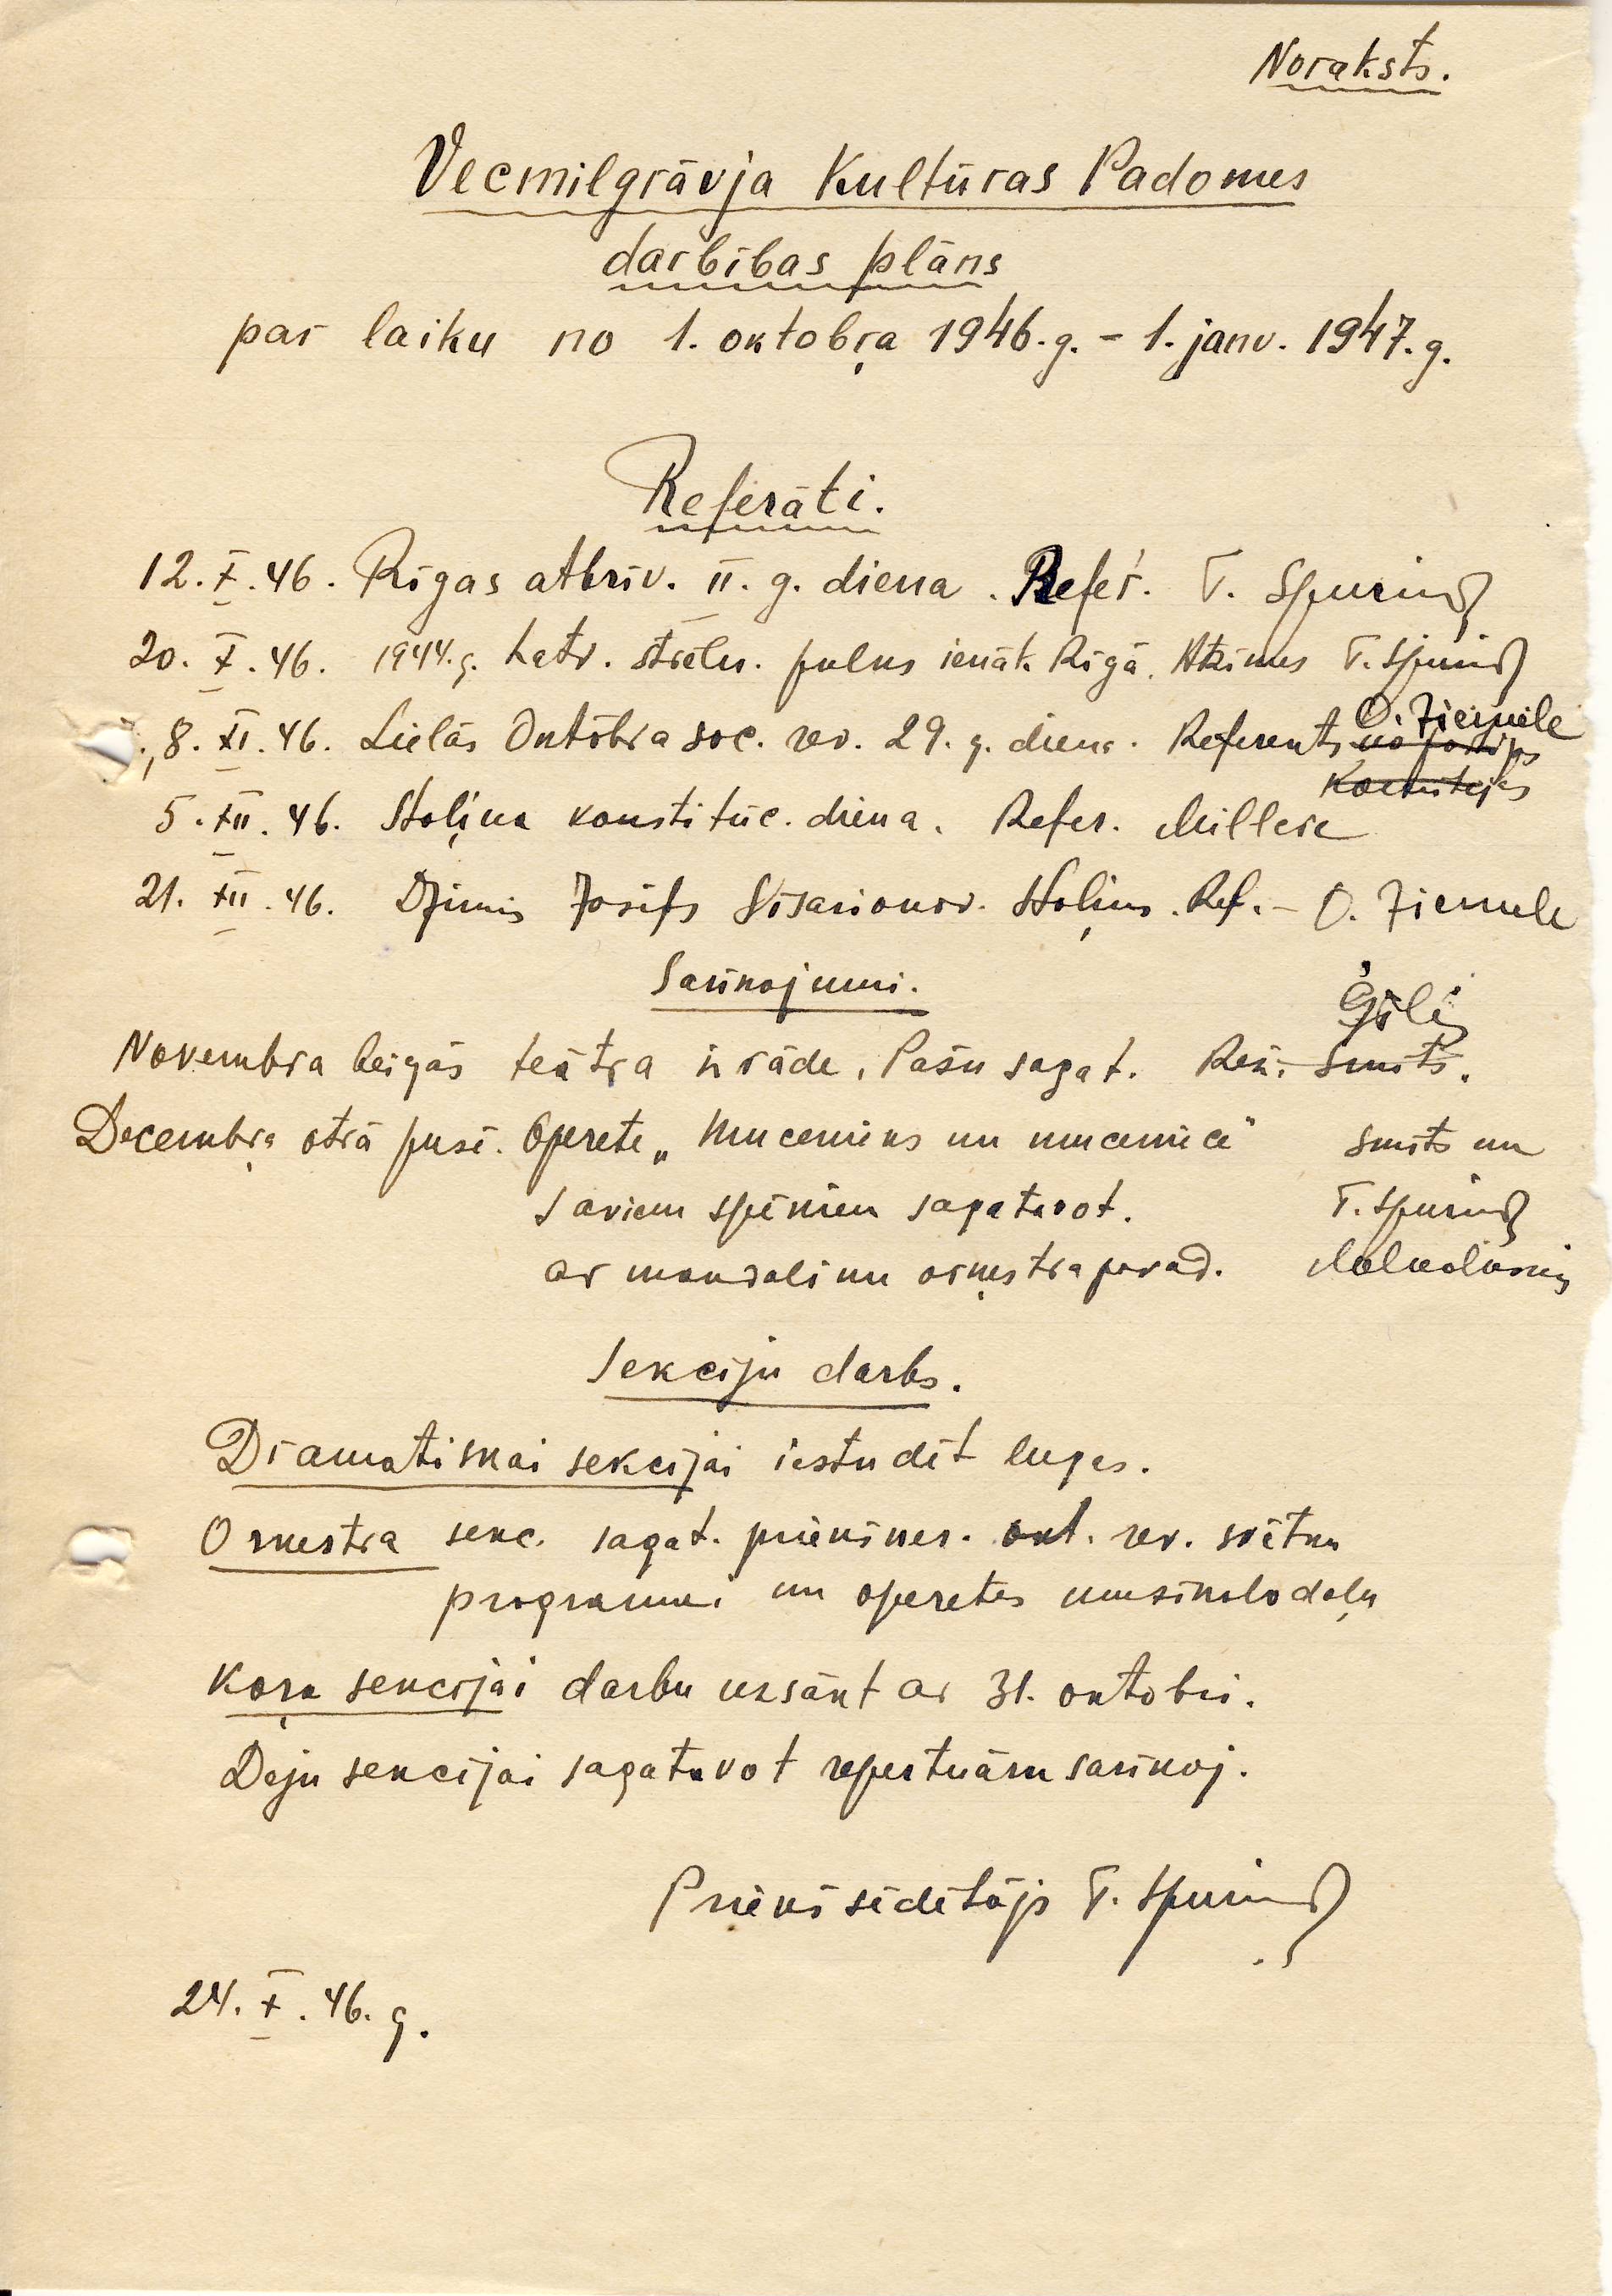 Noraksts.
Vecmilgrāvja Kultūras Padomes
darbības plāns
par laiku no 1. oktobŗa 1946.g. - 1. janv. 1947.g.
Referāti.
12. X. 46. Rīgas atbrīv. II. g. diena. Refer. T. Spuriņš
20. X. 46. 1944.g. Latv. strēln. pulks ienāk Rīgā. Atzīmes T. Spuriņš
7., 8. XI. 46. Lielās Oktobra soc. rev. 29. g. diena. Referents O. Ziemele
no partijas
Komitejas
5. XII. 46. Staļina konstitūc. diena. Refer. Millere
21. XII. 46. Dzimis Josifs Visarionov. Staļins. Ref. - O. Ziemele
Sarīkojumi.
Ģīlis
Novembra beigās teātra izrāde. Pašu sagat. Rež. Smits.
Decembŗa otrā pusē. Operete „Mucenieks un mucenieces" Smits un
Saviem spēkiem sagatavot. T. Spuriņš
ar mandolīnu orķestra pavad.
Sekciju darbs.
Dramatiskai sekcijai iestudēt lugas.
Orkestra sekc. sagat. priekšnes. okt. rev. svētku
programmai un operetes muzikālo daļu
Koŗa sekcijai darbu uzsākt ar 31. oktobri.
Deju sekcijai sagatavot repertuāru sarīkoj.
Priekšsēdētājs T. Spuriņš
24. X. 46. g.